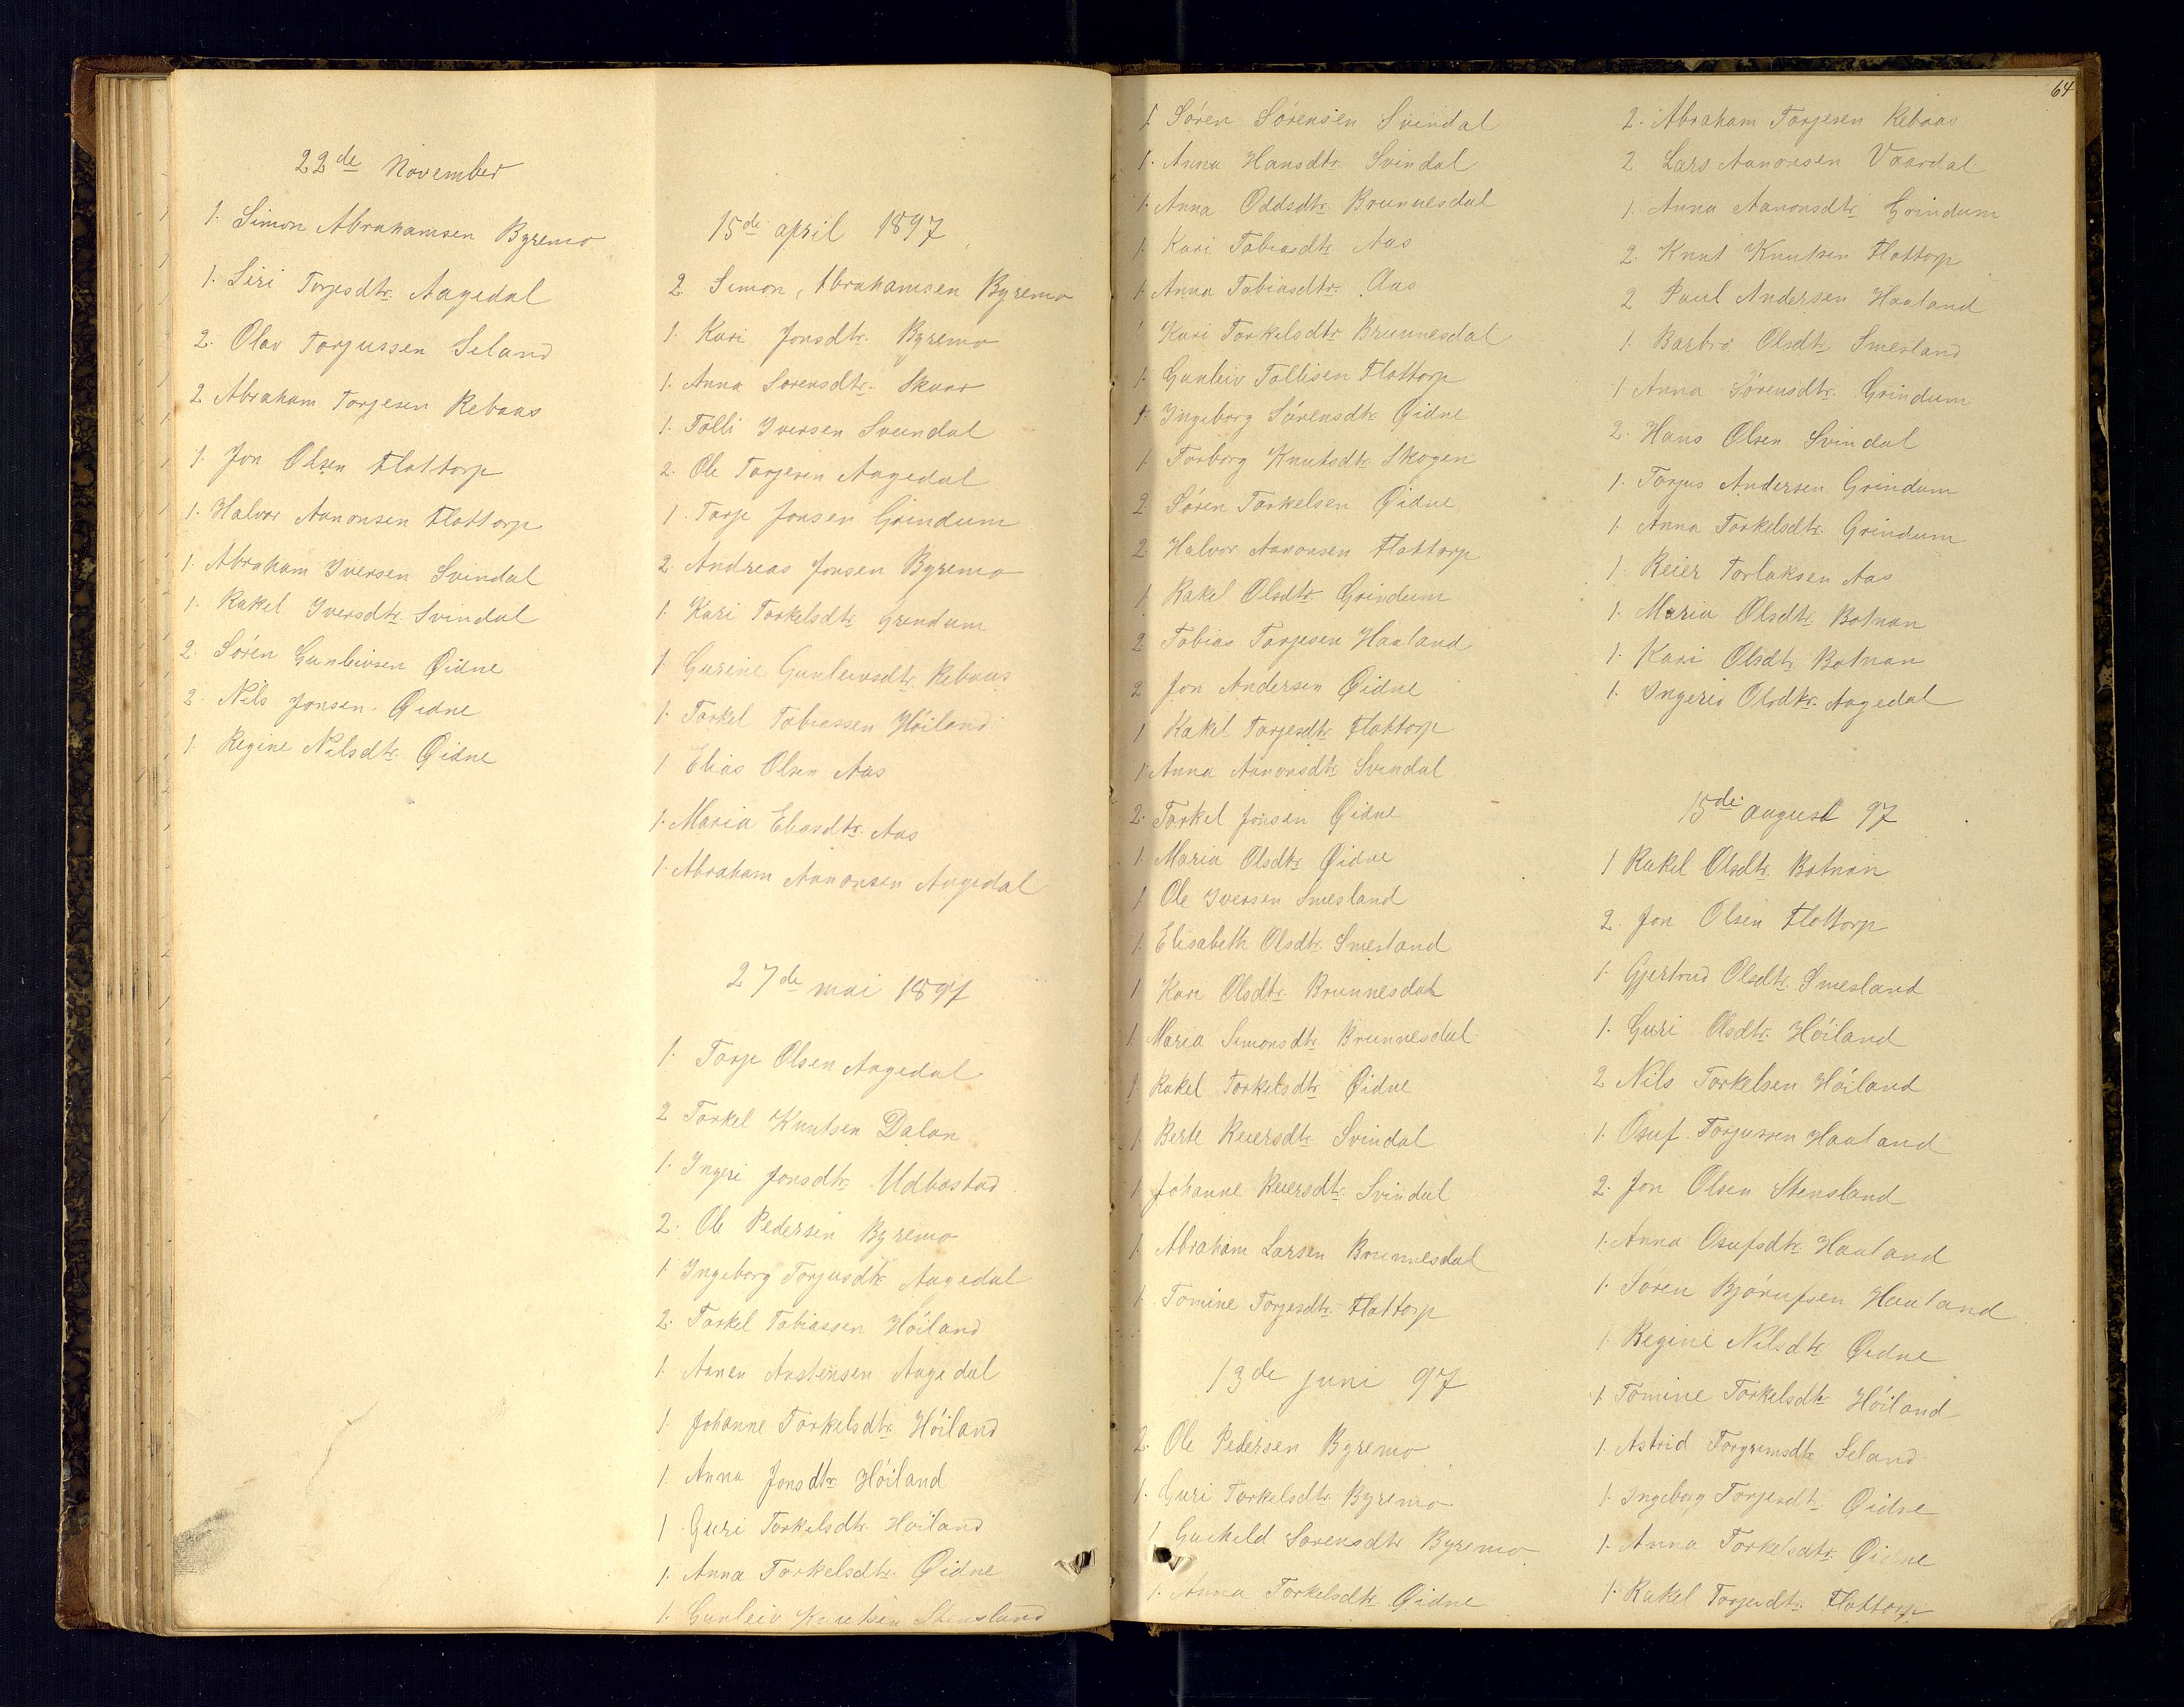 22de November
1. Simon Abrahamsen Byremo
1. Siri Torjesdtr. Aagedal
2. Olav Torjussen Seland
2 Abraham Torjesen Rebaas
1. Jon Olsen Flottorp
1. Halvor Aanonsen Flottorp
1. Abraham Iversen Svindal
1. Rakel Iversdtr. Svindal
2. Sören Gunleivsen Øidne
2. Nils Jonsen Øidne
1. Regine Nilsdtr. Øidne
15de april 1897
2 Simon Abrahamsen Byremo
1. Kari Jonsdtr. Byremo
1. Anna Sorensdtr. Skuar
1. Tolli Iversen Sveindal
2. Ole Torjesen Aagedal
1. Torje Jonsen Grindum
2. Andreas Jonsen Byremo
1. Kari Torkelsdtr Grendum
1. Gurine Gunleivsdtr. Rebaas
1. Torkel Tobiassen Höiland
1 Elias Olsen Aas
1. Maria Eliasdtr. Aas
1. Abraham Aanonsen Aagedal
27de mai 1897
1. Torje Olsen Aagedal
2 Torkel Knutsen Dalan
1. Ingeri Jonsdtr. Udbostad
2. Ole Pedersen Byremo
1 Ingeborg Torjusdtr Aagedal
2. Torkel Tobiassen Höiland
1. Aanen Austensen Aagedal
1. Johanne Torkelsdtr. Höiland
1. Anna Jonsdtr. Höiland
1. Guri Torkelsdtr. Hoiland
1. Anna Torkelsdtr. Øidne
1. Gunleiv Knutsen Stensland
64
1. Sören Sörensen Svindal
1. Anna Hansdtr. Svindal
1. Anna Oddsdtr. Brunnesdal
1. Kari Tobiasdtr. Aas
1. Anna Tobiasdtr. Aas
1 Kari Torkelsdtr Brunnesdal
1. Gunleiv Tollisen Flottorp
1. Ingeborg Sörensdtr. Øidne
1. Torborg Knutsdtr. Skogen
2. Sören Torkelsen Øidne
2. Halvor Aanonsen Flottorp
1 Rakel Olsdtr. Grindum
2 Tobias Torjesen Haaland
2 Jon Andersen Øidne
1 Rakel Torjesdtr. Flottorp
1 Anna Aanonsdtr. Svindal
2. Torkel Jonsen Øidne
1. Maria Olsdtr. Øidne
1 Ole Iversen Smesland
1. Elisabeth Olsdtr. Smesland
1 Kari Olsdtr. Brunnesdal
1 Maria Simonsdtr. Brunnesdal
1 Rakel Torkelsdtr. Øidne
1 Berte Reiersdtr. Svindal
1 Johanne Reiersdtr. Svindal
1. Abraham Larsen Brunnesdal
1. Tomine Torjesdtr. Flottorp
13de juni 97
2. Ole Pedersen Byremo
1. Guri Torkelsdtr. Byremo
1 Gunhild Sorensdtr Byremo
1. Anna Torkelsdtr. Øidne
2. Abraham Torjesen Rebaas
2 Lars Aanonsen Vaardal
1. Anna Aanonsdtr. Grindum
2. Knut Knutsen Flottorp
2 Paul Andersen Haaland
1. Barbro Olsdtr. Smesland
1 Anna Sörensdtr. Grindum
2. Hans Olsen Svindal
1. Torjus Andersen Grindum
1. Anna Torkelsdtr. Grindum
1. Reier Torlaksen Aas
1. Maria Olsdtr. Botnan
1. Kari Olsdtr. Botnan
1. Ingerid Olsdtr. Aagedal
15de august 97
1 Rakel Olsdtr. Botnan
2. Jon Olsen Flottorp
1. Gjertrud Olsdtr. Smesland
1. Guri Olsdtr. Höiland
2 Nils Torkelsen Höiland
1. Osuf Torjussen Haaland
2. Jon Olsen Stensland
1. Anna Osufsdtr. Haaland
1. Sören Bjórufsen Haaland
1. Regine Nilsdtr. Øidne
1. Tomine Torkelsdtr. Höiland
1. Astrid Torgrimsdtr Seland
1. Ingeborg Torjesdtr. Øidne
1. Anna Torkelsdtr. Øidne
1. Rakel Torjesdtr. Flottorp